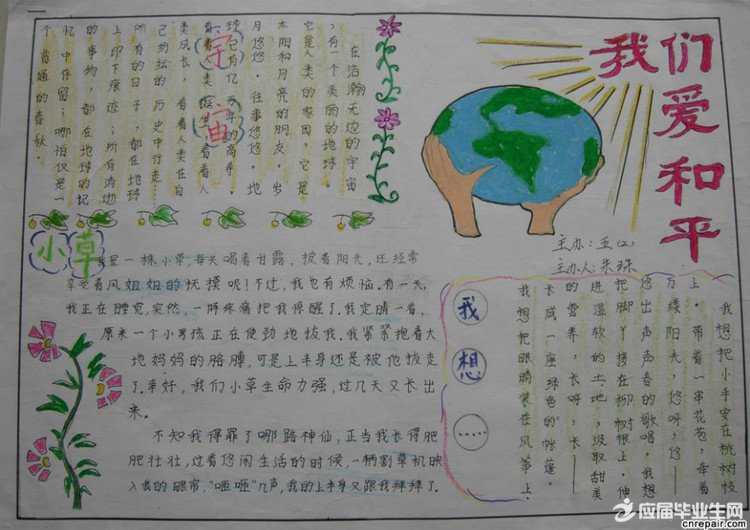 我们爱和平
主办:五(二)
主办人:朱
宇宙
在浩瀚无边的宇宙
,有一个美丽的地球。
它是人类的家园,它是
太阳和月亮的朋友。岁
月悠悠。往事悠悠。地
球已有亿万年的高寿
看着人类诞生,看着人
类成长,看着人类在自
己刻的历史中行走…
所有的日子,都在地球
上印下痕迹;所有消
的事物,都在地球的记
忆中保留;哪怕仅是一
个普通的春秋。
小草
我是一株小草,每天喝着甘露,披着阳光,还经常
享受着风姐姐的抚摸呢!不过,我也有烦恼。有一天,
我正在睡觉,突然,一阵疼痛把我惊醒了。我定睛一看,
原来一个小男孩正在使劲地拔我。我紧紧抱着大
地妈妈的胳膊,可是上半身还是被他拔走
了。幸好,我们小草生命力强,过几天又长出
来。
不知我得罪了哪路神仙,正当我长得肥
肥壮壮,过着悠闲生活的时候,一辆割草机映
入我的眼帘,"咂咂"几声,我的上半身又跟我拜拜了。
我想……
我想把小手安在桃树枝
上。带着一串花苞,牵着
万缕阳光,悠呀,悠——
悠出声声春的歌唱,我想
把脚丫接在柳树根上。伸
进湿软的土地,汲取甜美
的营养,长呀,长——
长成一座绿色的帐篷。
我想把眼睛装在风筝上。
应届毕业生网
cnrepair.com